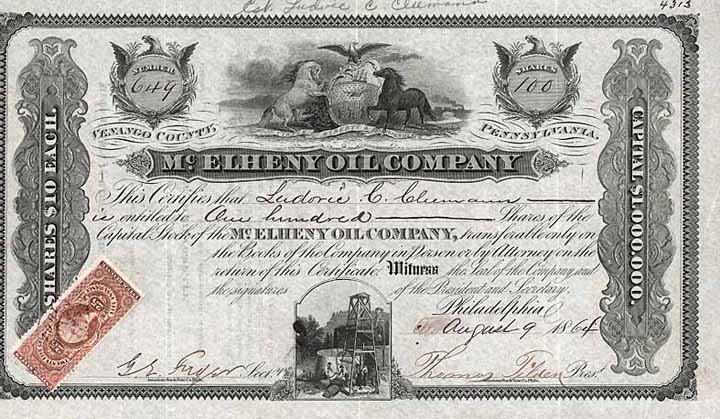 Est. Ludovic C. Cleemann
4313
NUMBER
649
SHARES
100
VENANGO COUNTY,
PENNSYLVANIA.
Mc ELHENY OIL COMPANY
SHARES $10 EACH.
CAPITAL $1,000,000.
This Certifies that Ludovic C. Cleemann
is entitled to One hundred Shares of the
Capital Stock of the Mc ELHENY OIL COMPANY, transferable only on
the Books of the Company in Person or by Attorney on the
return of this Certificate. Witness the Seal of the Company and
the signatures of the President and Secretary.
Philadelphia
August 9 1864
Sect'y
Thomas Pres't